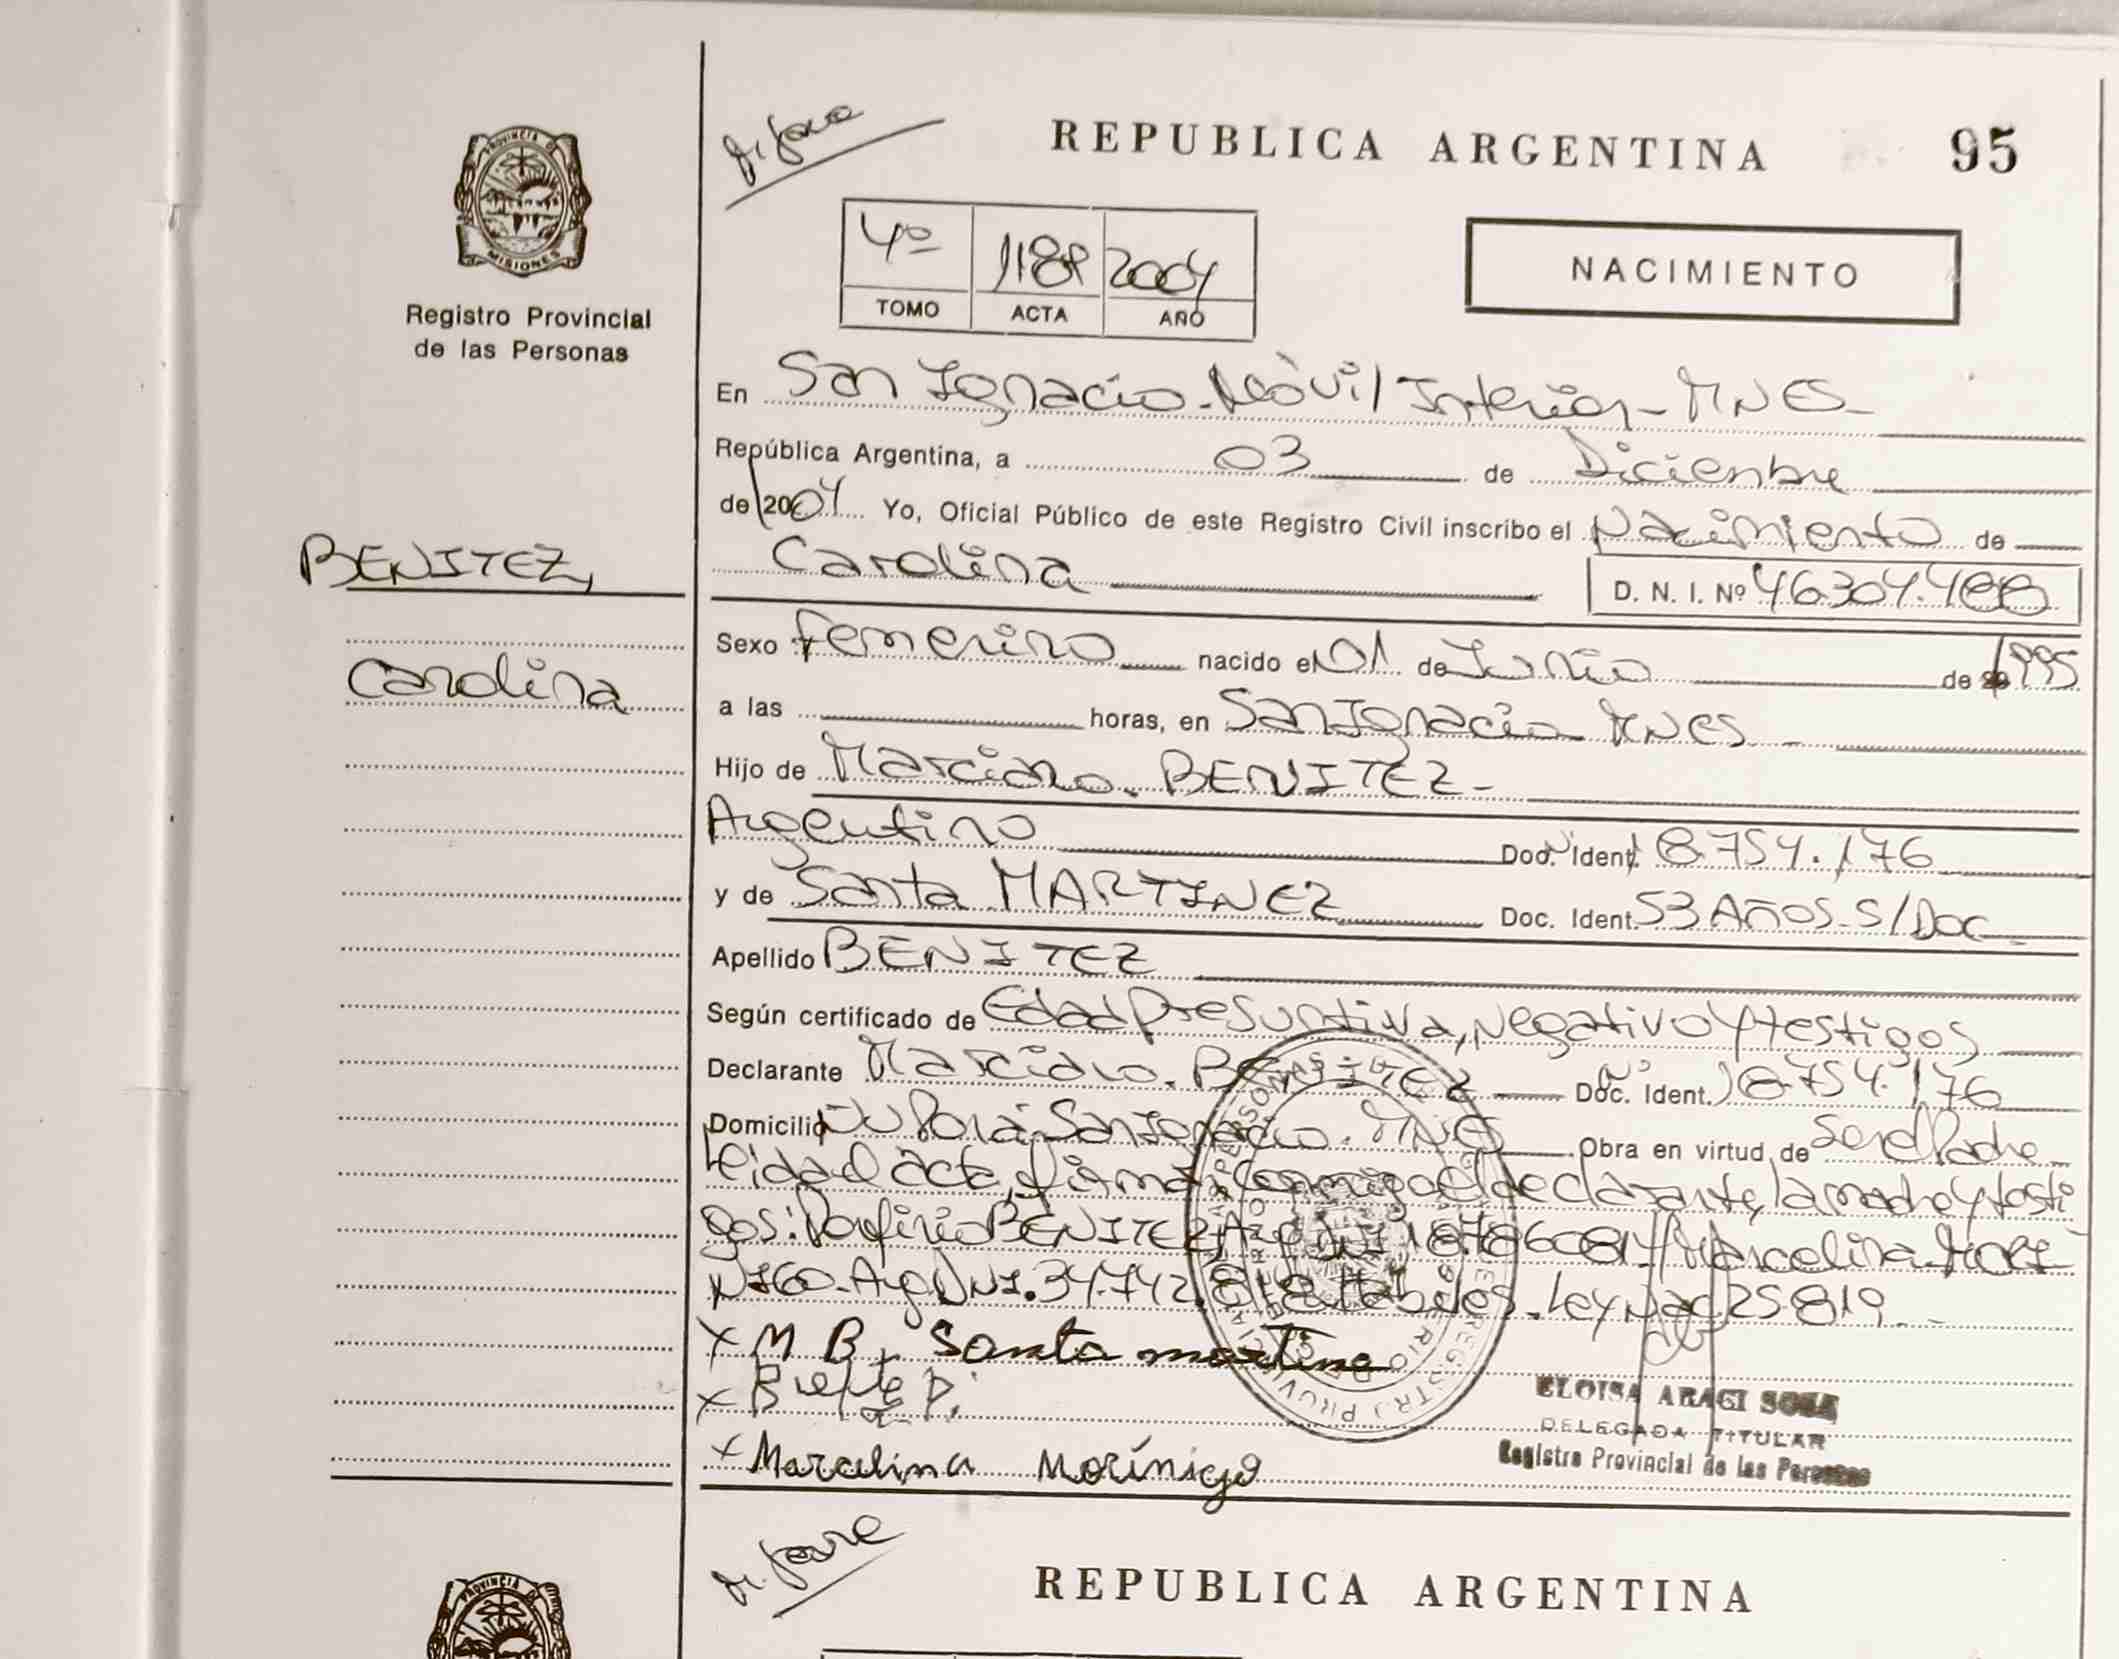 REPUBLICA ARGENTINA 95
PROVINCIA DE MISIONES
Registro Provincial
de las Personas
4º 1188 2004
TOMO ACTA AÑO
NACIMIENTO
En San Ignacio. Móvil Interior - MNES-
República Argentina, a 03 de Diciembre
de 2004 Yo, Oficial Público de este Registro Civil inscribo el Nacimiento de
BENITEZ,
Carolina
Carolina D. N. I. Nº 46.304.488
Sexo femenino nacido el 01 de Junio de 1995
a las horas, en San Ignacio MNES -
Hijo de Marciano. BENITEZ-
Argentino Doc. Ident. 18.754.176
y de Santa MARTINEZ Doc. Ident. 53 AÑOS-S/Doc-
Apellido BENITEZ
Según certificado de Edad Presuntiva, Negativo y testigos
Declarante Marciano. BENITEZ Doc. Ident. 18.754.176
Domicilio Porá-San Ignacio. MNES Obra en virtud de Ser el Padre-
Leida el acta, firma conmigo el declarante, la madre y testi
gos: Porfirio BENITEZ Marcelina MORI
NIGO-Arg DNI.34.742. Ley Nac 25.819.-
x M B. Santa martine
x
x Marcelina Morínigo
ELOISA ARAGI SOSA
DELEGADA TITULAR
Registro Provincial de las Personas
REPUBLICA ARGENTINA
PROVINCIA DE